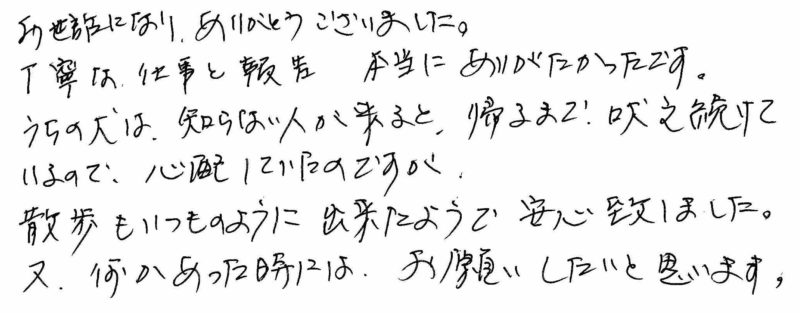 お世話になり、ありがとうございました。
丁寧な仕事と報告 本当にありがたかったです。
うちの犬は、知らない人が来ると、帰るまで、吠え続けて
いるので、心配していたのですが、
散歩もいつものように出来たようで安心致しました。
又、何かあった時には、お願いしたいと思います。